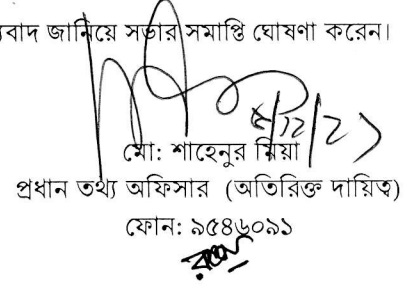 বাদ জানিয়ে সভার সমাপ্তি ঘোষণা করেন।
মো: শাহেনুর মিয়া
প্রধান তথ্য অফিসার (অতিরিক্ত দায়িত্ব)
ফোন: ৯৫৪৬০৯১